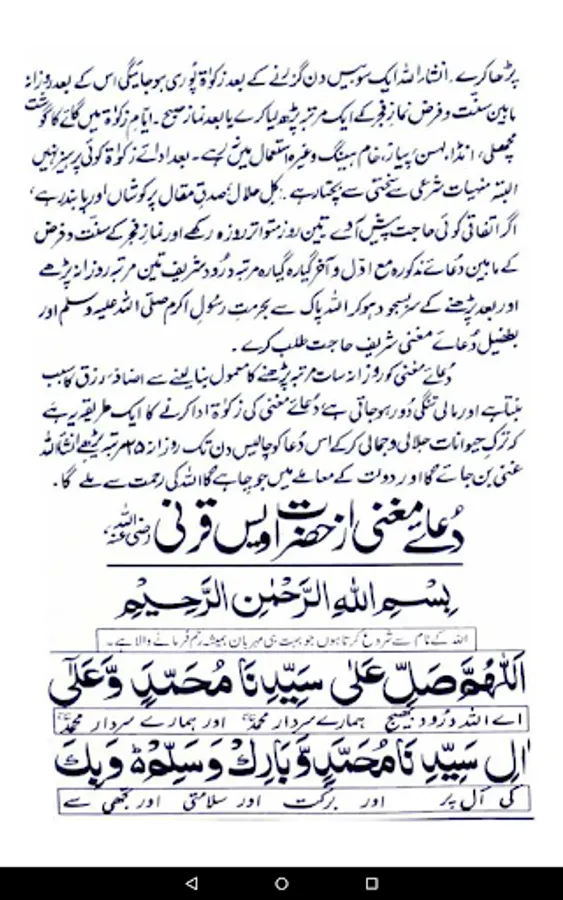 پڑھا کرے۔ انشاء اللہ ایک سو بیس دن گزرنے کے بعد زکوٰۃ پوری ہو جائیگی اس کے بعد روزانہ
مابین سنّت و فرض نمازِ فجر کے ایک مرتبہ پڑھ لیا کرے یا بعد نماز صبح۔ ایّامِ زکوٰۃ میں گائے کا گوشت
مچھلی، انڈا، لہسن، پیاز، خام ہینگ وغیرہ استعمال میں نہ رہے۔ بعد ادائے زکوٰۃ کوئی پرہیز نہیں
البتہ منہیات شرعی سے سختی سے بچتا رہے۔ اکل حلال، صدقِ مقال پر کوشاں اور پابند رہے،
اگر اتفاقی کوئی حاجت پیش آئے تین روز متواتر روزہ رکھے اور نماز فجر کے سنّت و فرض
کے مابین دُعائے مذکورہ مع اوّل و آخر گیارہ گیارہ مرتبہ درُود شریف تین مرتبہ روزانہ پڑھے
اور بعد پڑھنے کے سر بسجود ہو کر اللہ پاک سے بحرمتِ رسُولِ اکرم صلّی اللہ علیہ وسلم اور
بطفیل دُعائے مغنی شریف حاجت طلب کرے۔
دُعائے مغنی کو روزانہ سات مرتبہ پڑھنے کا معمول بنا لینے سے اضافۂ رزق کا سبب
بنتا ہے اور مالی تنگی دُور ہو جاتی ہے دُعائے مغنی کی زکوٰۃ ادا کرنے کا ایک طریقہ یہ ہے
کہ ترکِ حیوانات جلالی و جمالی کر کے اس دُعا کو چالیس دن تک روزانہ ۲۵ مرتبہ پڑھے انشاء اللہ
غنی بن جائے گا اور دولت کے معاملے میں جو چاہے گا اللہ کی رحمت سے ملے گا۔
دُعائے مغنی از حضرت اویس قرنی رضی اللہ عنہ
بِسْمِ اللهِ الرَّحْمٰنِ الرَّحِيْمِ
اللہ کے نام سے شروع کرتا ہوں جو بہت ہی مہربان ہمیشہ رحم فرمانے والا ہے۔
اَللّٰهُمَّ صَلِّ عَلٰى سَيِّدِنَا مُحَمَّدٍ وَّعَلٰٓى
اے اللہ درُود بھیج ہمارے سردار محمدؐ اور ہمارے سردار محمدؐ
اٰلِ سَيِّدِنَا مُحَمَّدٍ وَّبَارِكْ وَسَلِّمْ وَبِكَ
کی آل پر اور برکت اور سلامتی اور تجھی سے